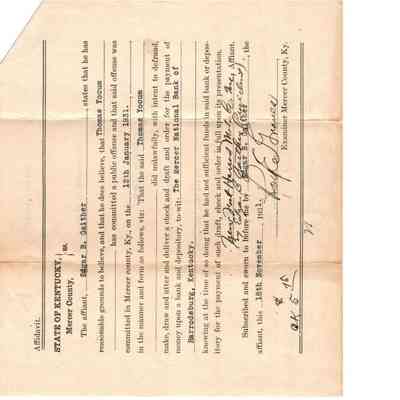 Affidavit.
STATE OF KENTUCKY, } ss.
Mercer County,
The affiant, Edgar B. Gaither, states that he has
reasonable grounds to believe, and that he does believe, that Thomas Yocum
has committed a public offense and that said offense was
committed in Mercer county, Ky., on the 12th January 1931.
in the manner and form as follows, viz: That the said Thomas Yocum
did unlawfully, with intent to defraud,
make, draw and utter and deliver a check and draft and order for the payment of
money upon a bank and depository, to-wit: The Mercer National Bank of
Harrodsburg, Kentucky.
knowing at the time of so doing that he had not sufficient funds in said bank or depos-
itory for the payment of such draft, check and order in full upon its presentation.
Affiant.
Subscribed and sworn to before me by Edgar B. Gaither, the
affiant, this 18th November 1931.
Examiner Mercer County, Ky.